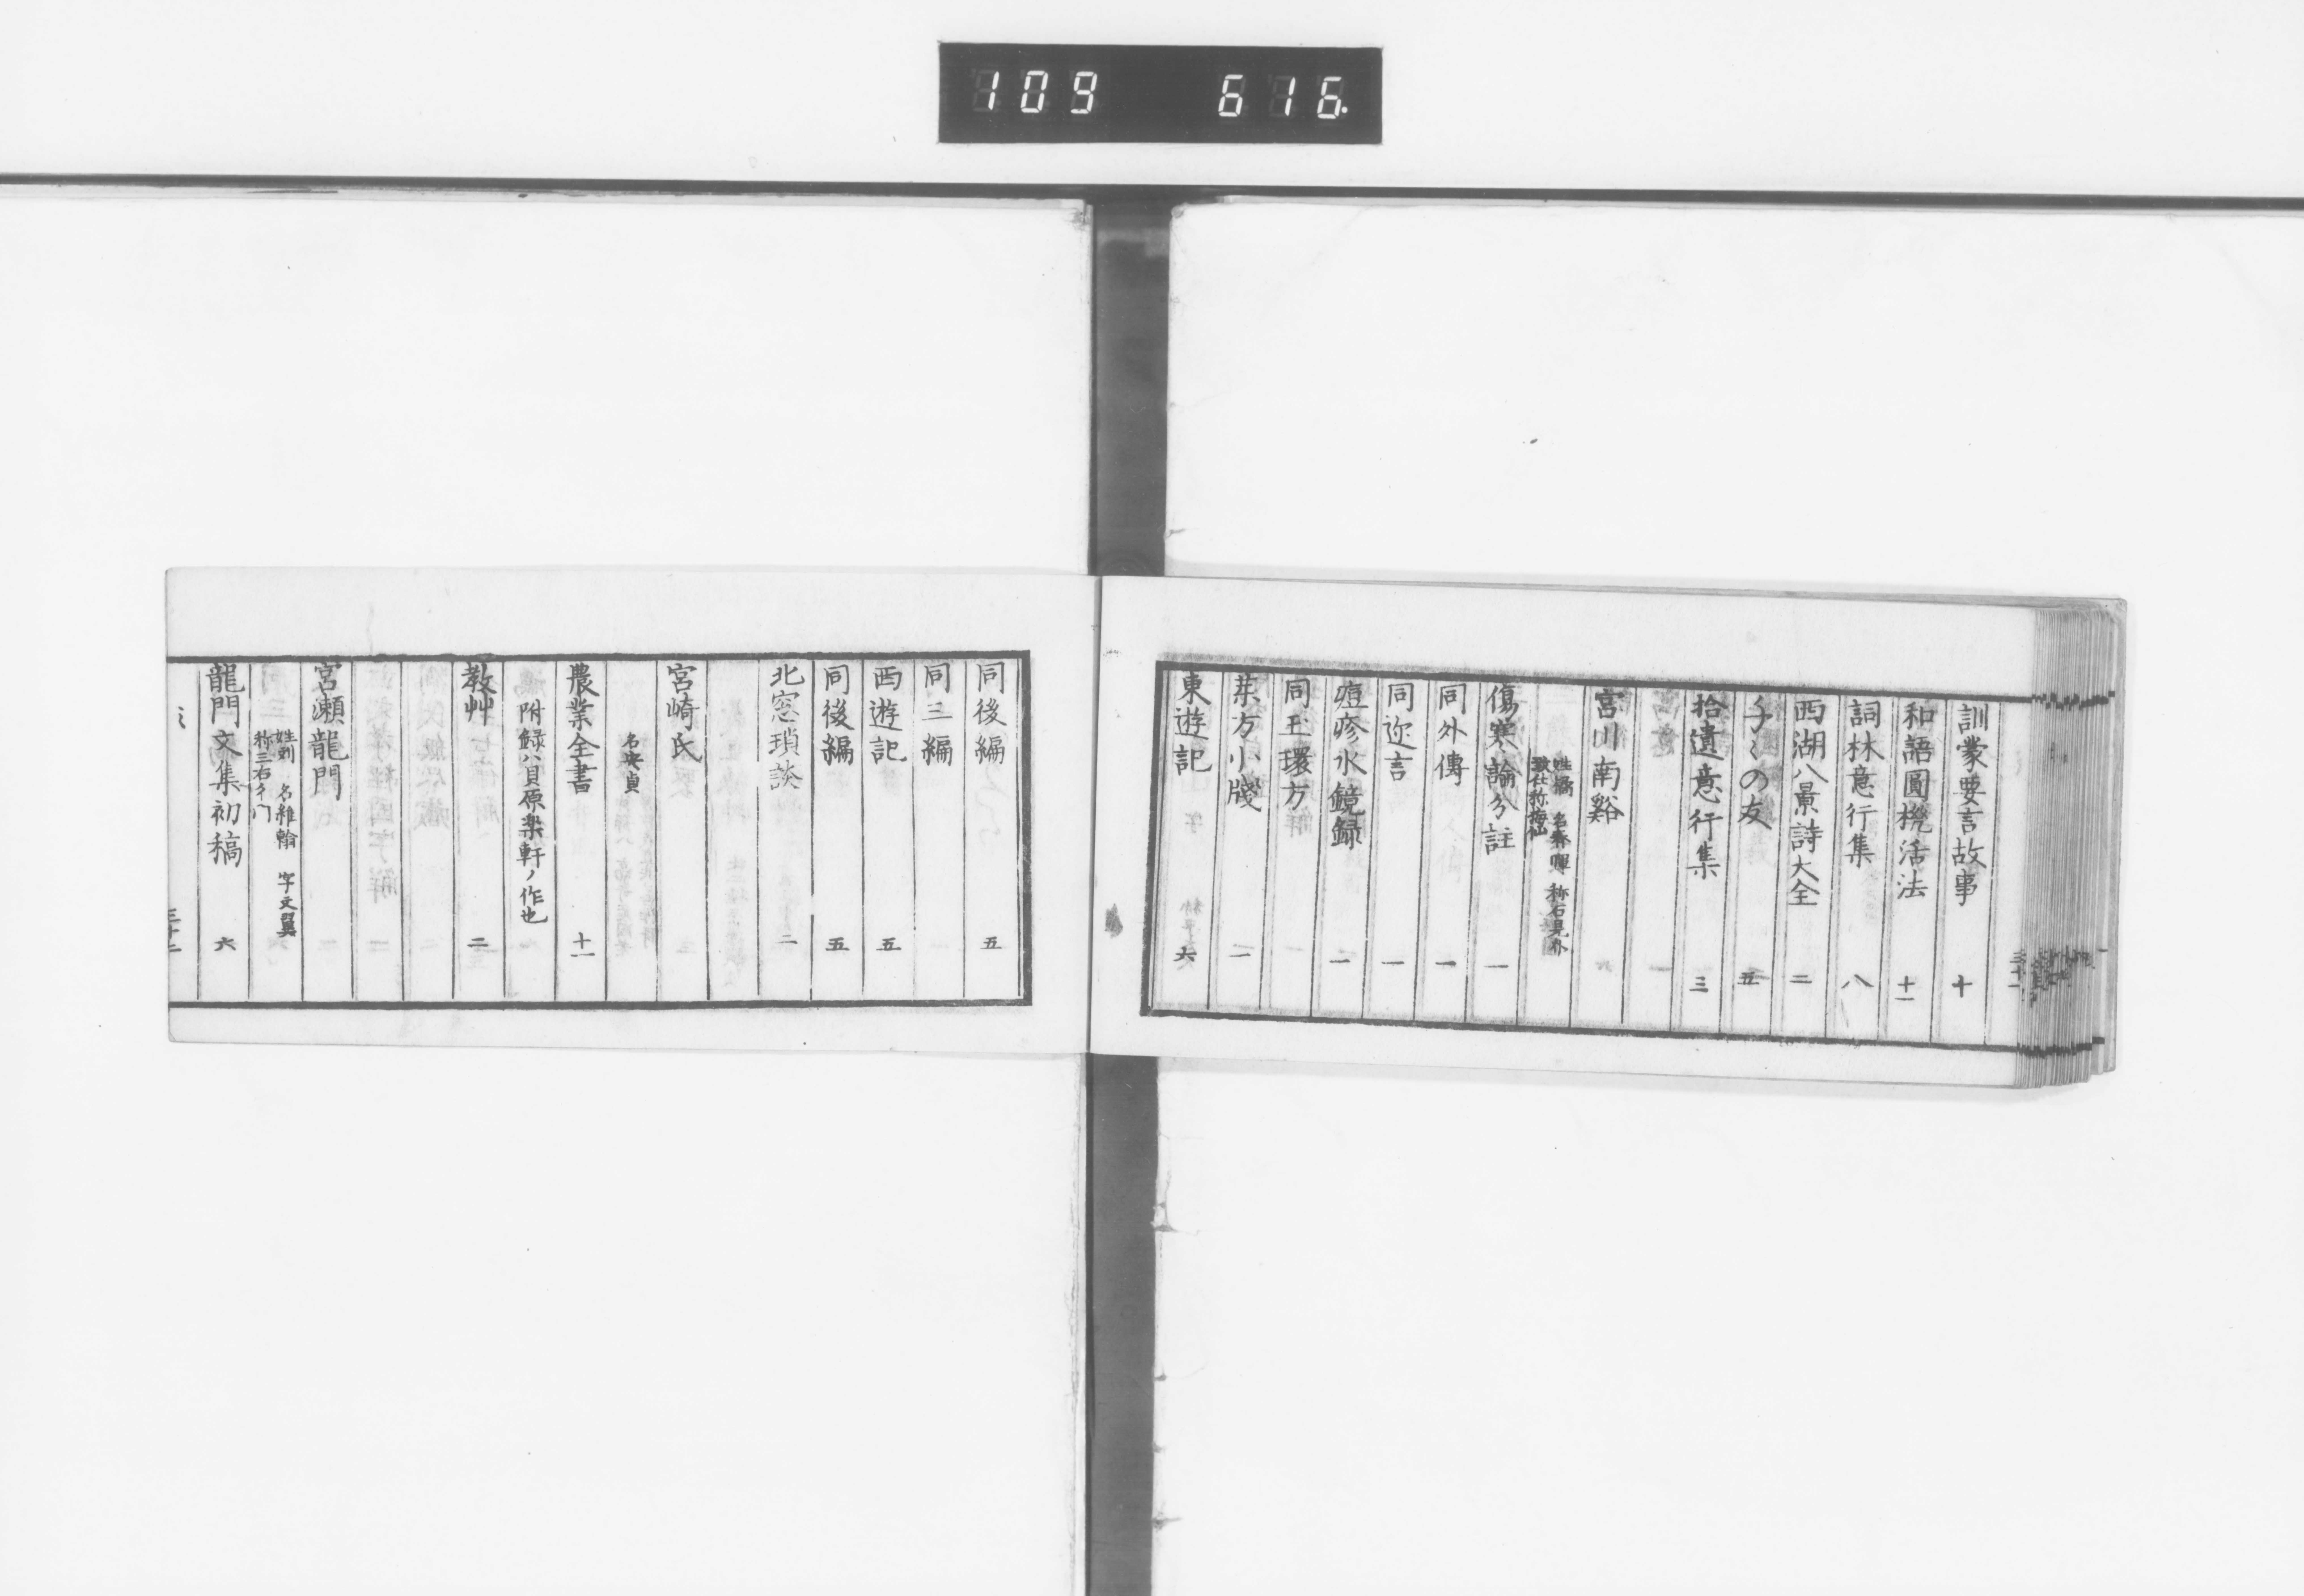 109 616.
訓蒙要言故事 十
和語圓機活法 十一
詞林意行集 八
西湖八景詩大全 二
千〻の友 五
拾遺意行集 三
宮川南谿
姓橘 名春暉 称石見介
致仕称梅仙
傷寒論分註 一
同外傳 一
同迩言 一
痘疹水鏡録 一
同玉環方
薬方小牋 一
東遊記 六
同後編 五
同三編
西遊記 五
同後編 五
北窓瑣談 二
宮崎氏
名安貞
農業全書 十一
附録ハ貝原楽軒ノ作也
教艸 二
宮瀬龍門
姓劉 名維翰 字文翼
称三右ヱ門
龍門文集初稿 六